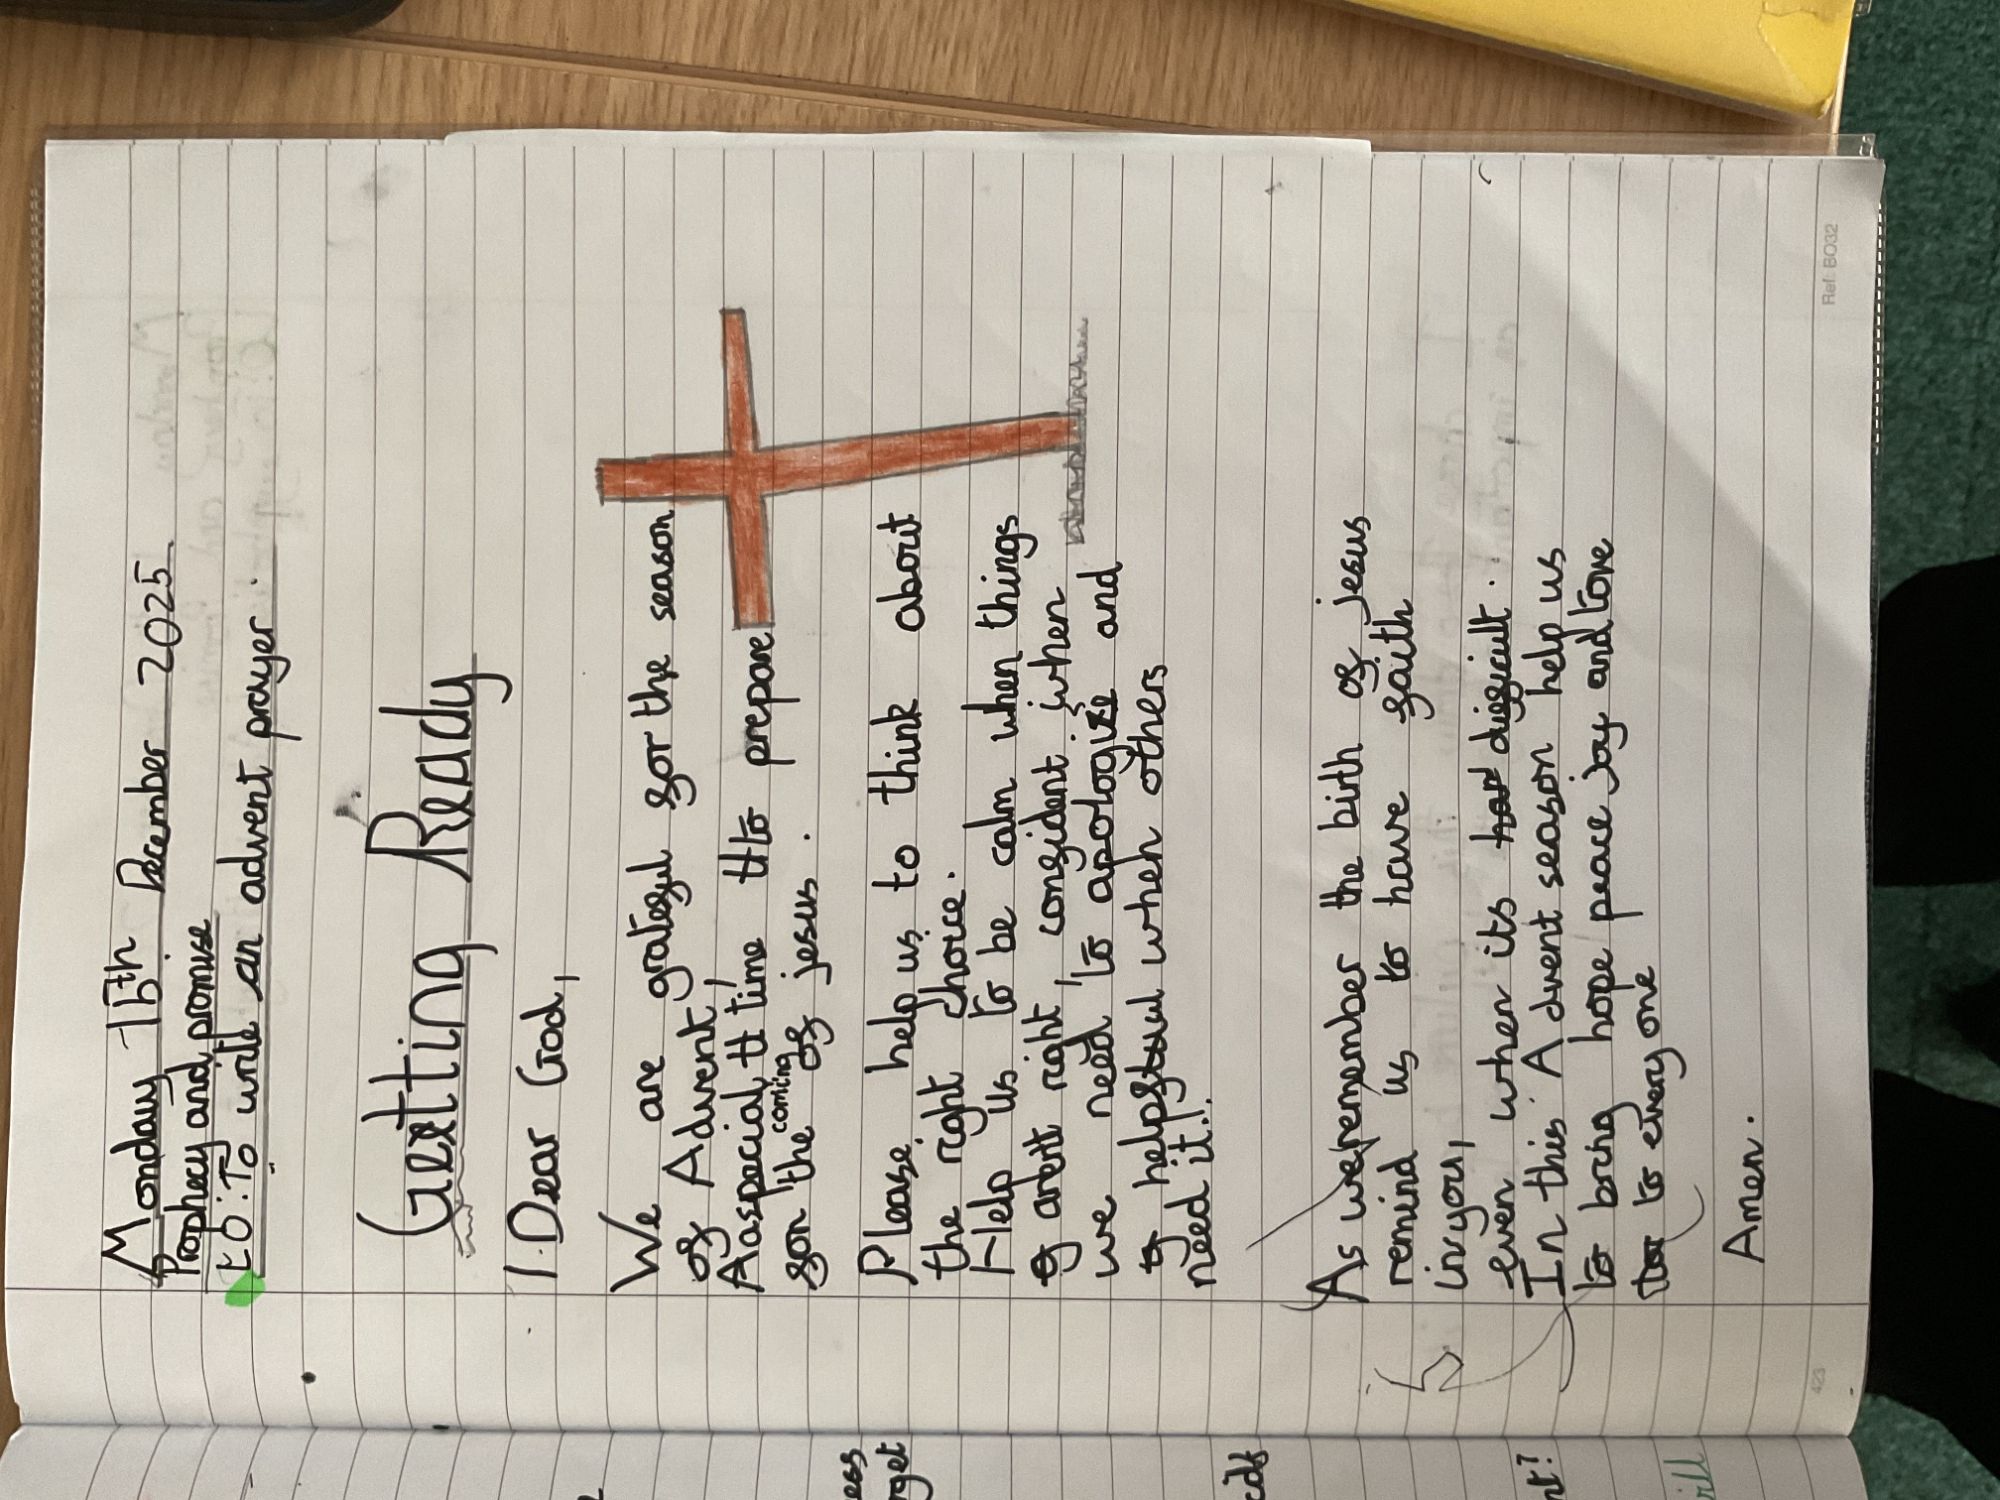 Monday 15th December 2025
Prophecy and promise
LO: To write an advent prayer.
Getting Ready
Dear God,
We are grateful for the season
of Advent,
A special time to prepare
for the coming of jesus.
Please help us to think about
the right choice.
Help us to be calm when things
arent right, confident when
we need to apologize and
helpful when others
need it!
As we remember the birth of jesus
remind us to have faith
in you,
even when its hard difficult.
In this Advent season help us
to bring hope peace joy and love
to every one
Amen.
ess
rget
cids
nt?
rill
Ref: BO32
423